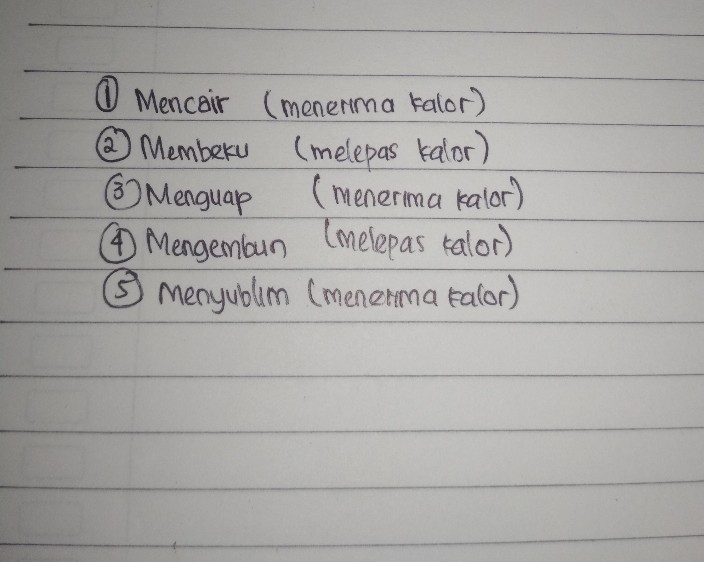 ① Mencair (menerima kalor)
② Membeku (melepas kalor)
③ Menguap (menerima kalor)
④ Mengembun (melepas kalor)
⑤ Menyublim (menerima kalor)